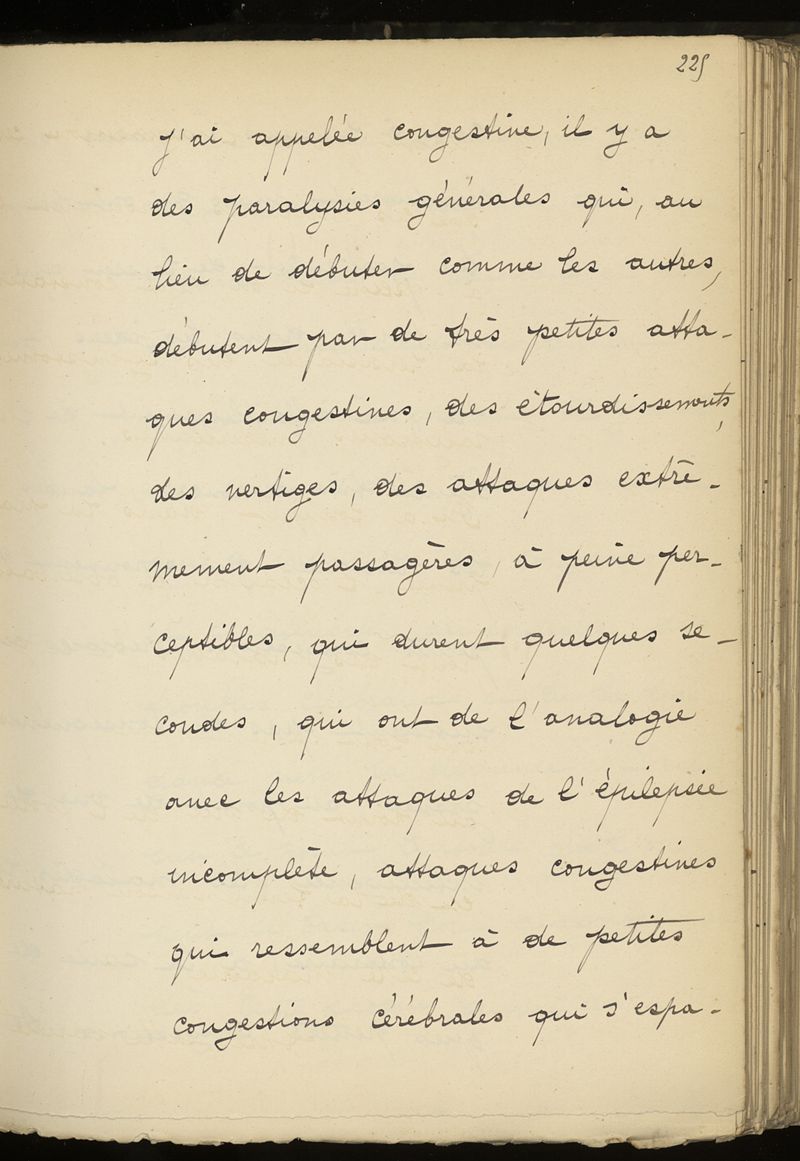 225
j'ai appelée congestive, il y a
des paralysies générales qui, au
lieu de débuter comme les autres,
débutent par de très petites atta-
ques congestives, des étourdissements,
des vertiges, des attaques extrê-
mement passagères, à peine per-
ceptibles, qui durent quelques se-
condes, qui ont de l'analogie
avec les attaques de l'épilepsie
incomplète, attaques congestives
qui ressemblent à de petites
congestions cérébrales qui s'espa-